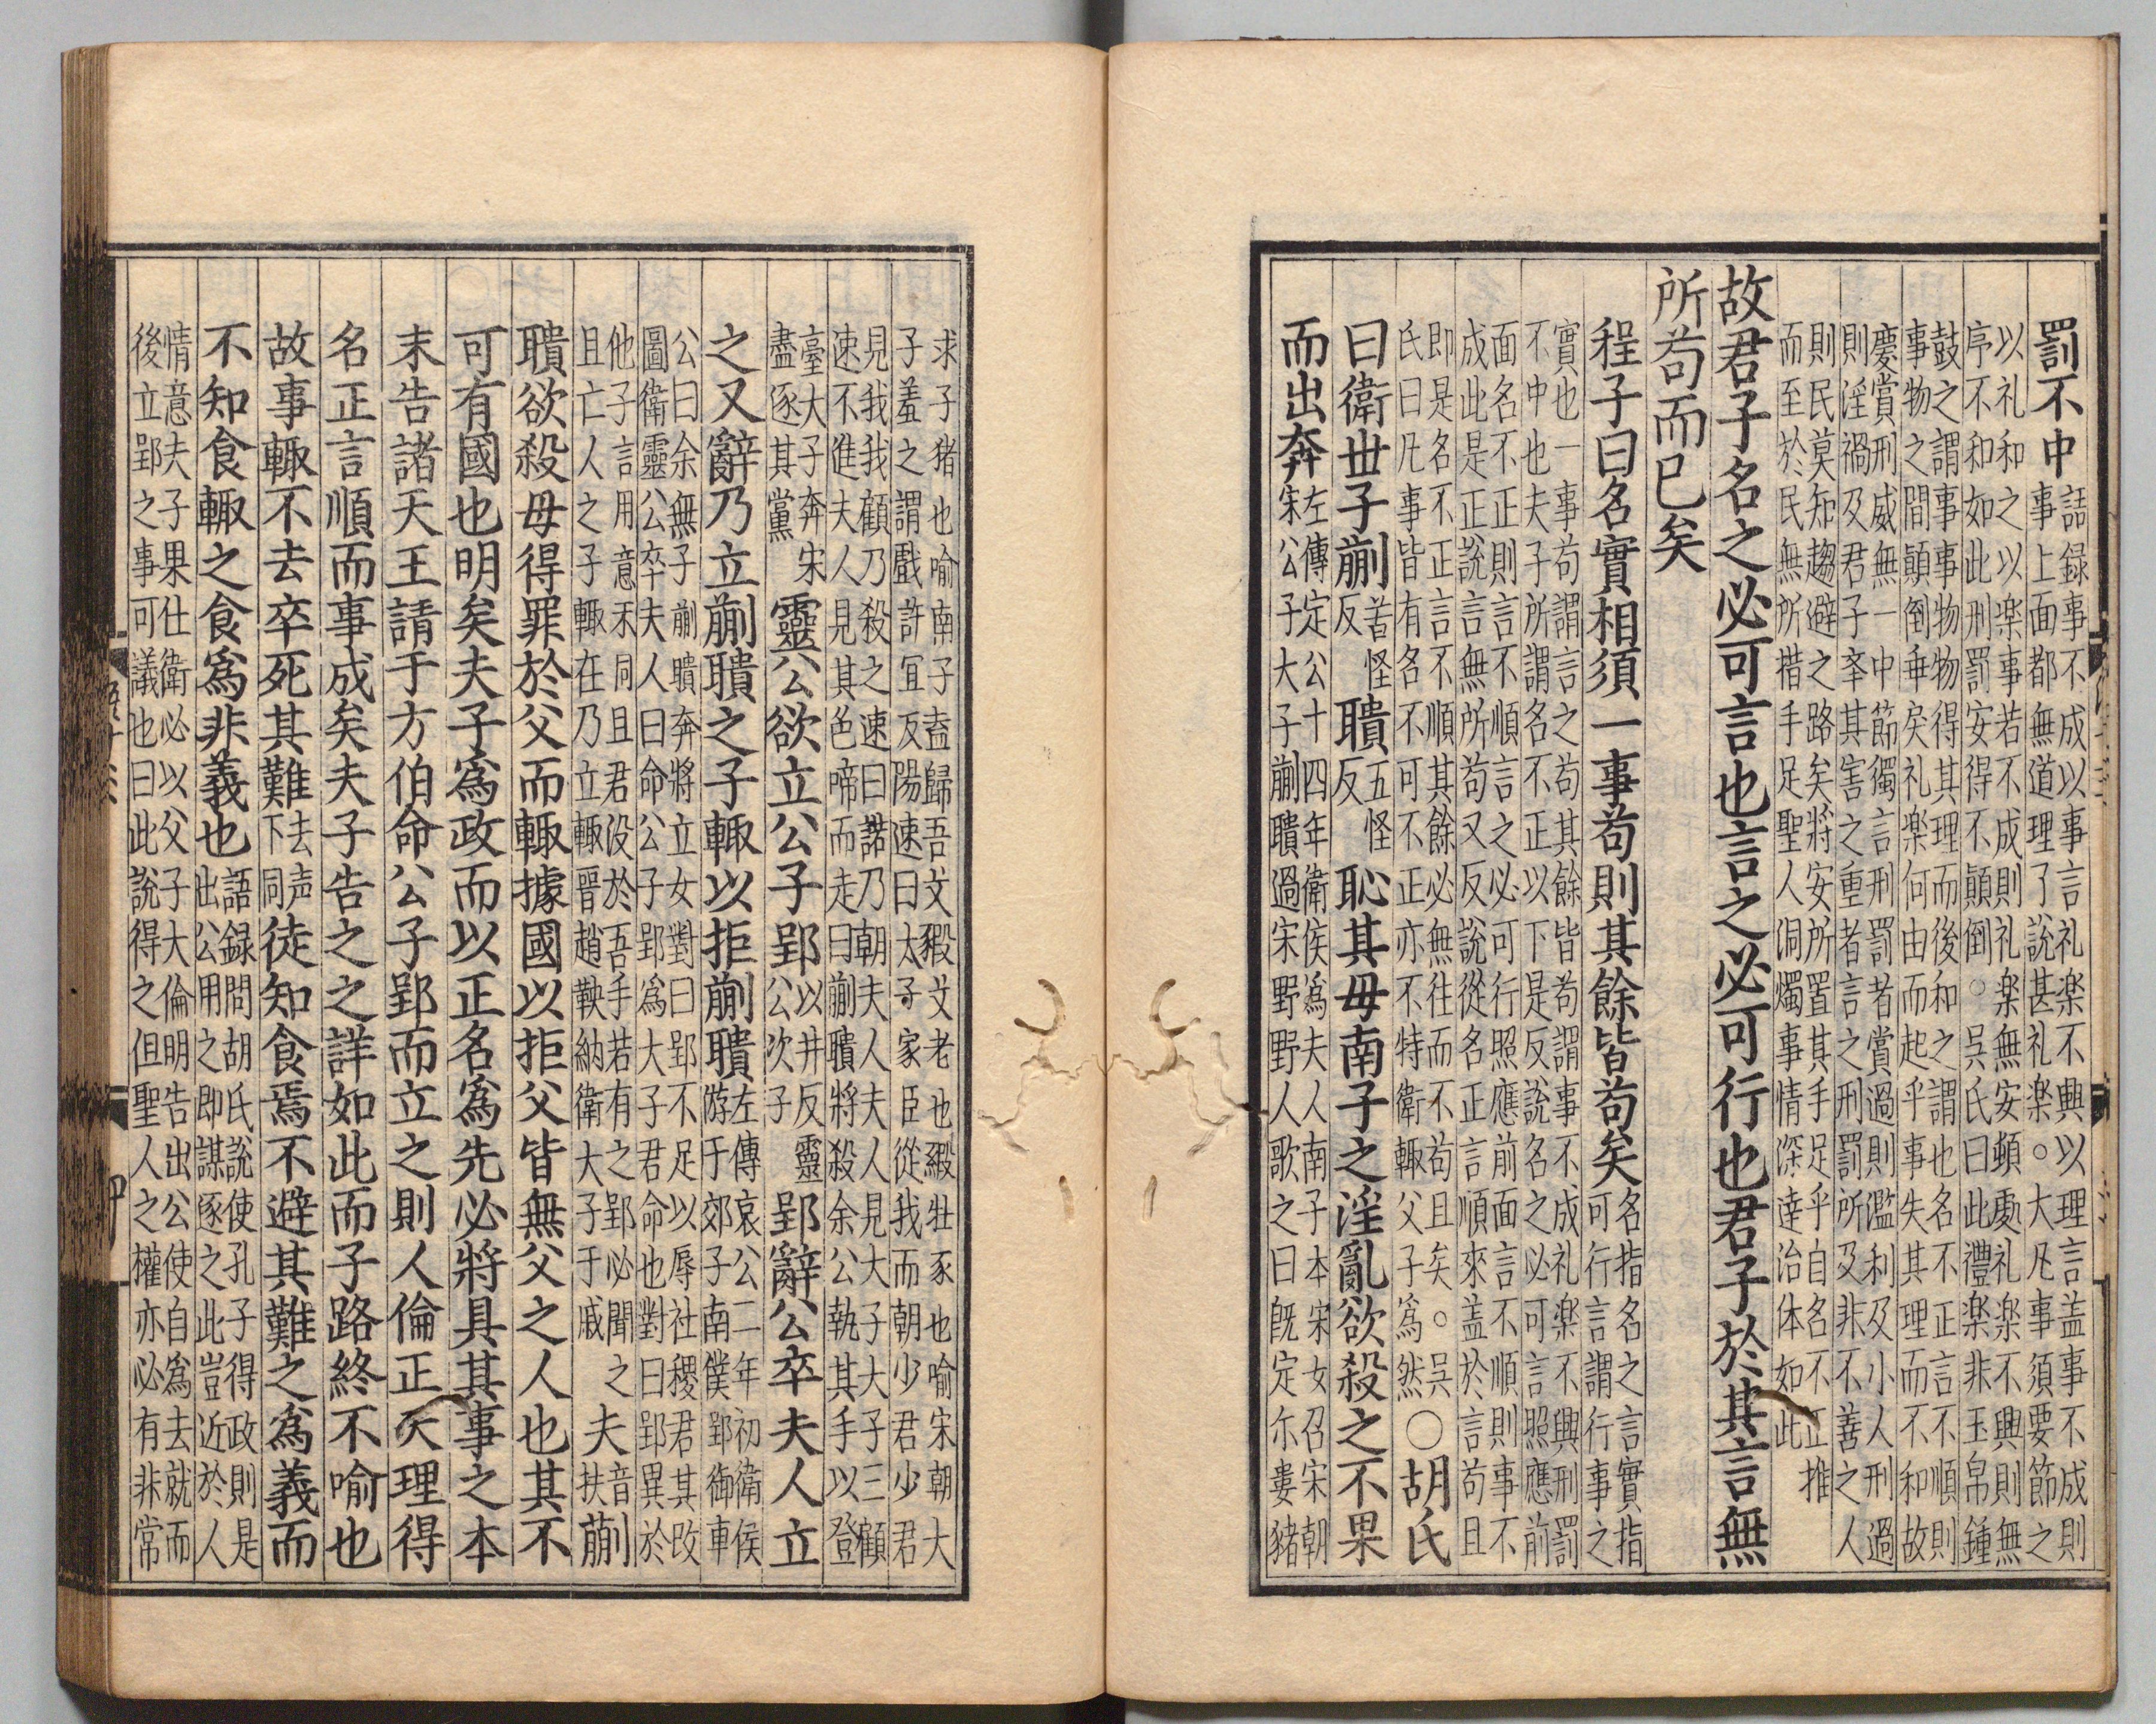 罰不中
話録事不成以事言礼楽不興以理言盖事不成則
事上面都無道理了説甚礼楽。大凡事須要節之
以礼和之以楽事若不成則礼楽無安頓處礼楽不興則無
序不和如此刑罰安得不顛倒。吳氏曰此禮楽非玉帛鍾
鼓之謂事事物物得其理而後和之謂也名不正言不順則
事物之間顛倒乖戾礼楽何由而起乎事失其理而不和故
慶賞刑威無一中節獨言刑罰者賞過則濫利及小人刑過
則淫禍及君子奎其害之重者言之刑罰所及非不善之人
則民莫知趨避之路矣將安所置其手足乎自名不正推
而至於民無所措手足聖人洞燭事情深達治体如此
故君子名之必可言也言之必可行也君子於其言無
所苟而已矣
程子曰名實相須一事苟則其餘皆苟矣
名指名之言實指
可行言謂行事之
實也一事苟謂言之苟其餘皆苟謂事不成礼楽不興刑罰
不中也夫子所謂名不正以下是反説名之必可言照應前
面名不正則言不順言之必可行照應前面言不順則事不
成此是正説言無所苟又反説從名正言順來盖於言苟且
即是名不正言不順其餘必無往而不苟且矣。吳
氏曰凡事皆有名不可不正亦不特衛輒父子為然
○胡氏
曰衛世子蒯
苦怪
反
聵
五怪
反
恥其母南子之淫亂欲殺之不果
而出奔
左傳定公十四年衛侯為夫人南子本宋女召宋朝
宋公子大子蒯聵過宋野野人歌之曰旣定尓婁豬
求子豬也喻南子盍歸吾艾豭艾老也豭牡豕也喻宋朝大
子羞之謂戱許冝反陽速曰太子家臣從我而朝少君少君
見我我顧乃殺之速曰諾乃朝夫人夫人見大子大子三顧
速不進夫人見其色啼而走曰蒯聵將殺余公執其手以登
臺大子奔宋
盡逐其黨
靈公欲立公子郢
以井反靈
公次子
郢辭公卒夫人立
之又辭乃立蒯聵之子輒以拒蒯聵
左傳哀公二年初衛侯
游于郊子南僕郢御車
公曰余無子蒯聵奔將立女對曰郢不足以辱社稷君其改
圖衛靈公卒夫人曰命公子郢為大子君命也對曰郢異於
他子言用意不同且君没於吾手若有之郢必聞之
且亡人之子輒在乃立輒晉趙鞅納衛大子于戚
夫
音
扶
蒯
聵欲殺母得罪於父而輒據國以拒父皆無父之人也其不
可有國也明矣夫子為政而以正名為先必將具其事之本
末告諸天王請于方伯命公子郢而立之則人倫正天理得
名正言順而事成矣夫子告之之詳如此而子路終不喻也
故事輒不去卒死其難
去声
下同
徒知食焉不避其難之為義而
不知食輒之食為非義也
語録問胡氏説使孔子得政則是
出公用之即謀逐之此豈近於人
情意夫子果仕衛必以父子大倫明告出公使自為去就而
後立郢之事可議也曰此説得之但聖人之權亦必有非常